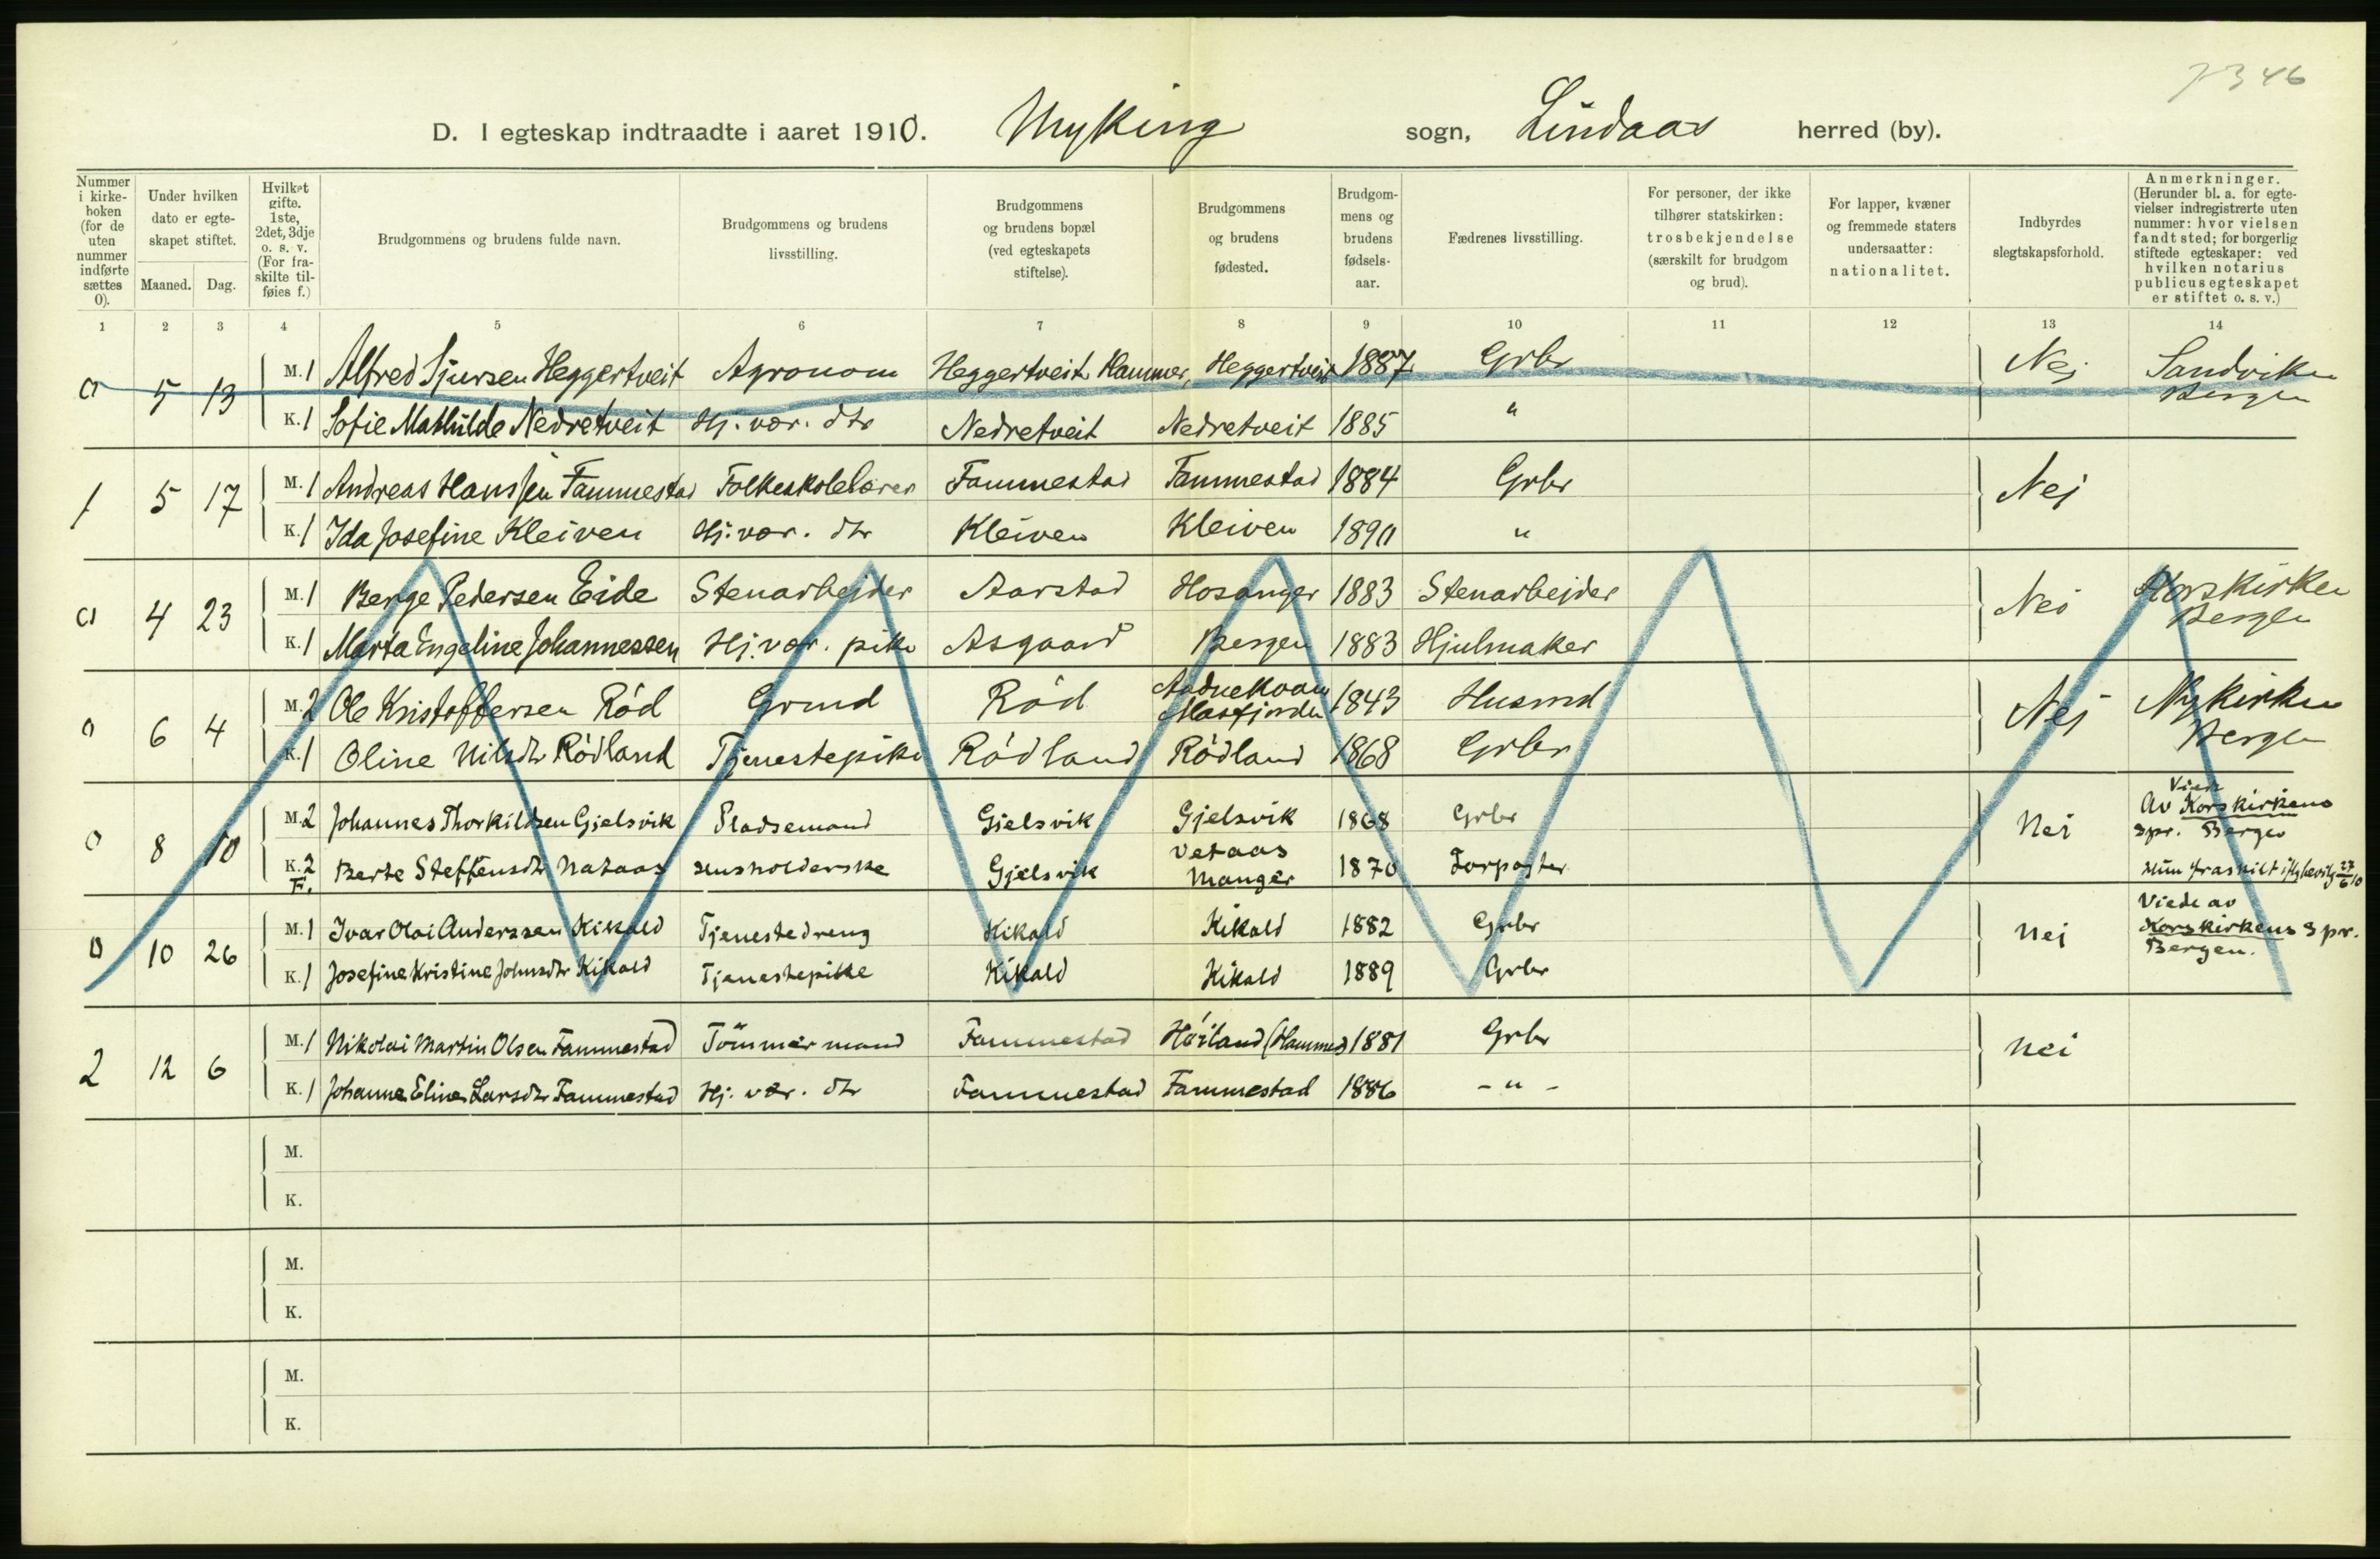 346
D. I egteskap indtraadte i aaret 1910. Myking sogn, Lindaas herred (by).
Nummer i kirke-boken (for de uten nummer indførte sættes 0).
Under hvilken dato er egte-skapet stiftet.
Maaned. Dag.
Hvilket gifte. 1ste, 2det, 3dje o. s. v. (For fra-skilte til-føies f.)
Brudgommens og brudens fulde navn.
Brudgommens og brudens livsstilling.
Brudgommens og brudens bopæl (ved egteskapets stiftelse).
Brudgommens og brudens fødested.
Brudgom-mens og brudens fødsels-aar.
Fædrenes livsstilling.
For personer, der ikke tilhører statskirken: trosbekjendelse (særskilt for brudgom og brud).
For lapper, kvæner og fremmede staters undersaatter: nationalitet.
Indbyrdes slegtskapsforhold.
Anmerkninger. (Herunder bl. a. for egte-vielser indregistrerte uten nummer: hvor vielsen fandt sted; for borgerlig stiftede egteskaper: ved hvilken notarius publicus egteskapet er stiftet o. s. v.)
1 2 3 4 5 6 7 8 9 10 11 12 13 14
0 5 13 M. 1 Alfred Sjursen Heggertveit Agronom Heggertveit Hammer, Heggertveit 1887 Grbr Nej Sandviken Bergen
K. 1 Sofie Mathilde Nedretveit Hj. vær. dtr Nedretveit Nedretveit 1885 "
1 5 17 M. 1 Andreas Hanssen Fammestad Folkeskolelærer Fammestad Fammestad 1884 Grbr Nej
K. 1 Ida Josefine Kleiven Hj. vær. dtr Kleiven Kleiven 1890 "
0 4 23 M. 1 Berge Pedersen Eide Stenarbejder Aarstad Hosanger 1883 Stenarbejder Nei Korskirken Bergen
K. 1 Marta Engeline Johannessen Hj. vær. pike Asgaard Bergen 1883 Hjulmaker
0 6 4 M. 2 Ole Kristoffersen Röd Grmd Röd Aadnekvam Masfjorden 1843 Husmd Nej Nykirken Bergen
K. 1 Oline Nilsdtr Rödland Tjenestepike Rödland Rödland 1868 Grbr
0 8 10 M. 2 Johannes Thorkildsen Gjelsvik Pladsemand Gjelsvik Gjelsvik 1868 Grbr Nei Viede Av Korskirkens Spr. Bergen
K. 2 F. Berte Steffensdtr Nataas Husholderske Gjelsvik Vetaas Manger 1870 Forpagter Hun fraskilt
0 10 26 M. 1 Ivar Olai Anderssen Kikald Tjenestedreng Kikald Kikald 1882 Grbr Nei Viede av Korskirkens Spr. Bergen.
K. 1 Josefine Kristine Johnsdtr Kikald Tjenestepike Kikald Kikald 1889 Grbr
2 12 6 M. 1 Nikolai Martin Olsen Fammestad Tömmermand Fammestad Höiland (Hammer) 1881 Grbr Nei
K. 1 Johanne Eline Larsdtr Fammestad Hj. vær. dtr Fammestad Fammestad 1886 - " -
M.
K.
M.
K.
M.
K.